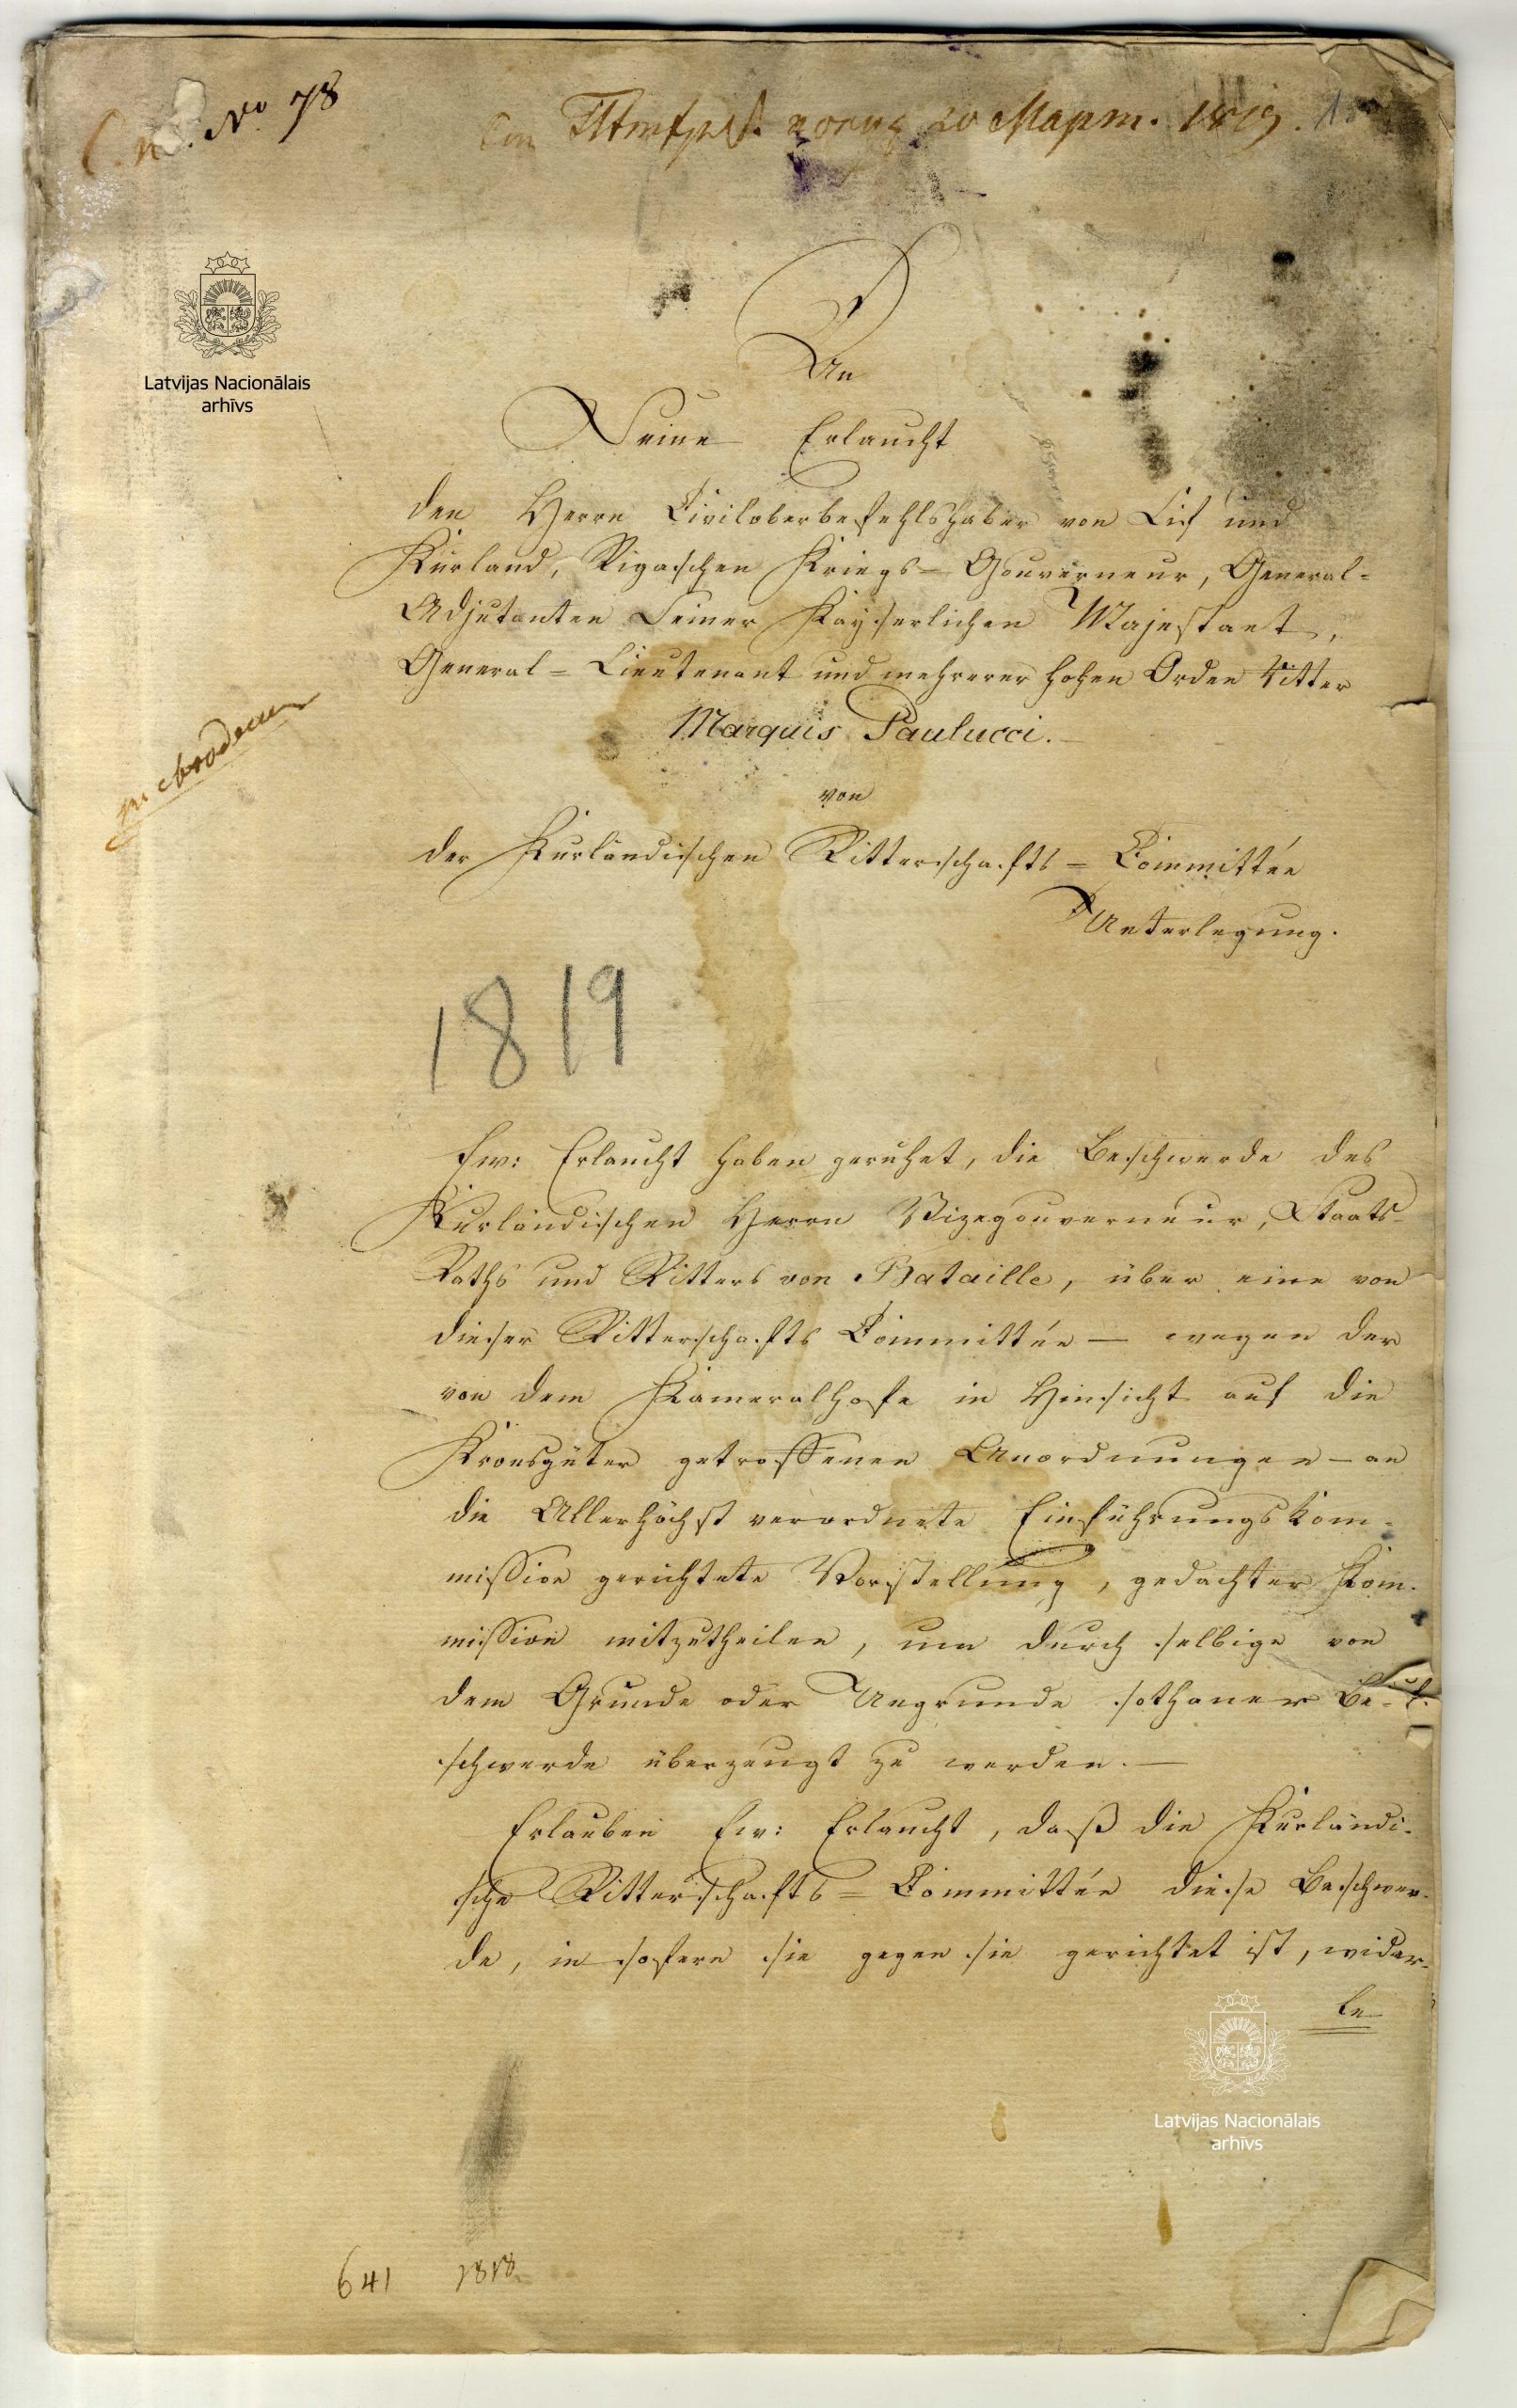 No 78
20 Март. 1819.
Latvijas Nacionālais
arhīvs
An
Seine Erlaucht
den Herrn Civiloberbefehlshaber von Lif und
Kurland, Rigaschen Kriegs= Gouverneur, General=
Adjutanten Seiner Kayserlichen Majestaet,
General= Lieutenant und mehrerer hohen Orden Ritter
Marquis Paulucci.
von
der Kurländischen Ritterschafts= Committée
Unterlegung.
1819
Ew: Erlaucht haben geruhet, die Beschwerde des
Kurländischen Herrn Vizegouverneur, Staats-
Raths und Ritters von Bataille, über eine von
dieser Ritterschafts Committée — wegen der
von dem Kameralhofe in Hinsicht auf die
Kronsgüter getroffenen Anordnungen — an
die Allerhöchst verordnete Einführungskom=
mission gerichtete Vorstellung, gedachter Kom-
mission mitzutheilen, um durch selbige von
dem Grunde oder Ungrunde sothaner Be-
schwerde überzeugt zu werden. —
Erlauben Ew: Erlaucht, daß die Kurländi-
sche Ritterschafts= Committée diese Beschwer-
de, in sofern sie gegen sie gerichtet ist, wider-
le
Latvijas Nacionālais
arhīvs
641 1818